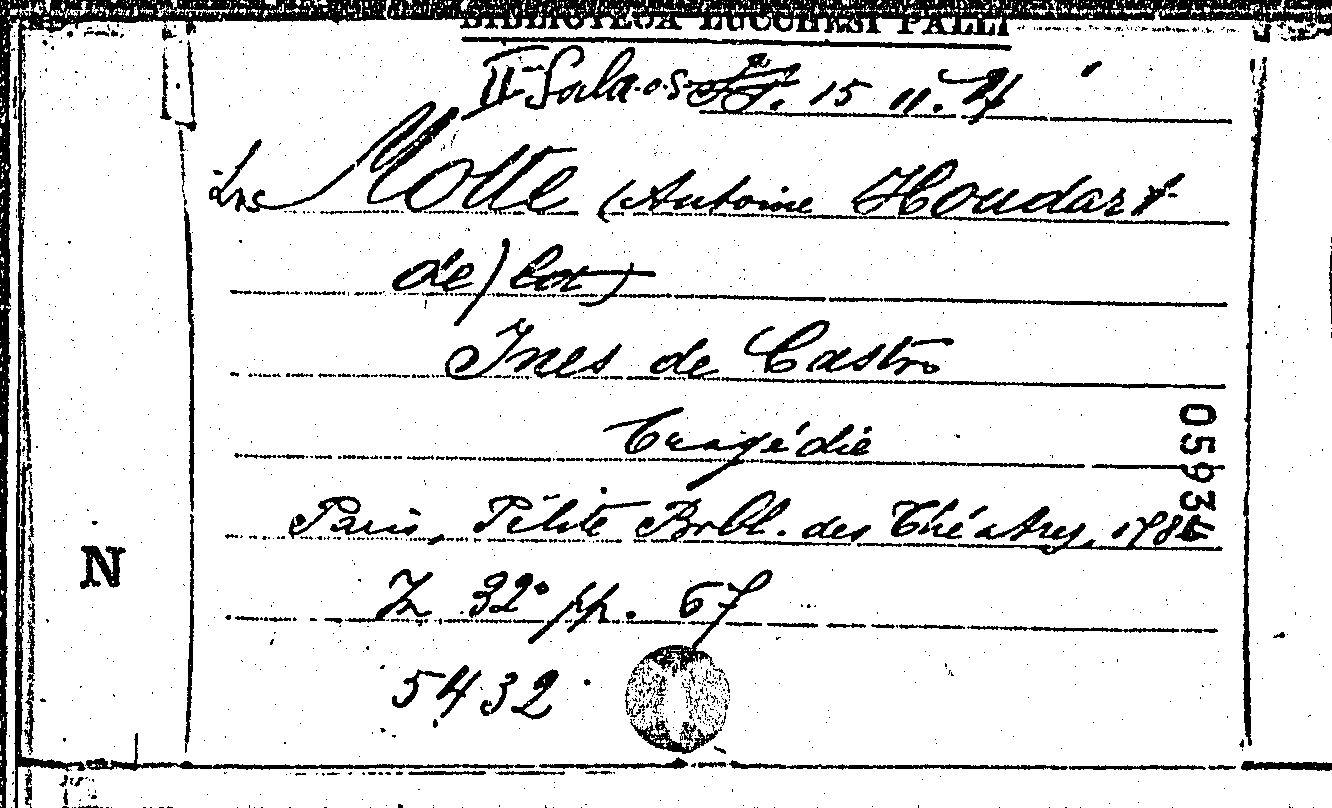 BIBLIOTECA LUCCHESI PALLI
II Sala 15
La Motte (Antoine Houdart
de)
Ines de Castro
Tragédie
Paris, Pétite Bibl. des Théatres,
In 32° pp. 67
5432
N
05934